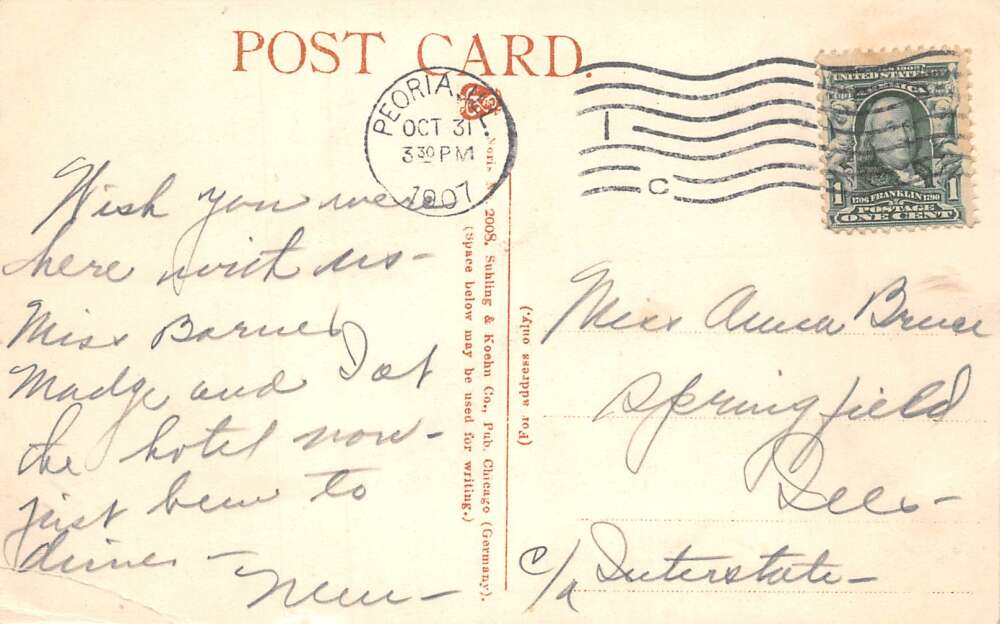 POST CARD.
PEORIA, ILL.
OCT 31
3 30 PM
1907
1
C
UNITED STATES OF
AMERICA
1706 FRANKLIN 1790
POSTAGE
1 ONE CENT 1
Wish you were
here with us-
Miss Barnes
Madge and I at
the hotel now-
just been to
dinner-
No. 2008. Suhling & Koehn Co., Pub. Chicago (Germany).
(Space below may be used for writing.)
(For address only.)
Miss Anna Bruce
Springfield
Ills-
c/o Interstate-